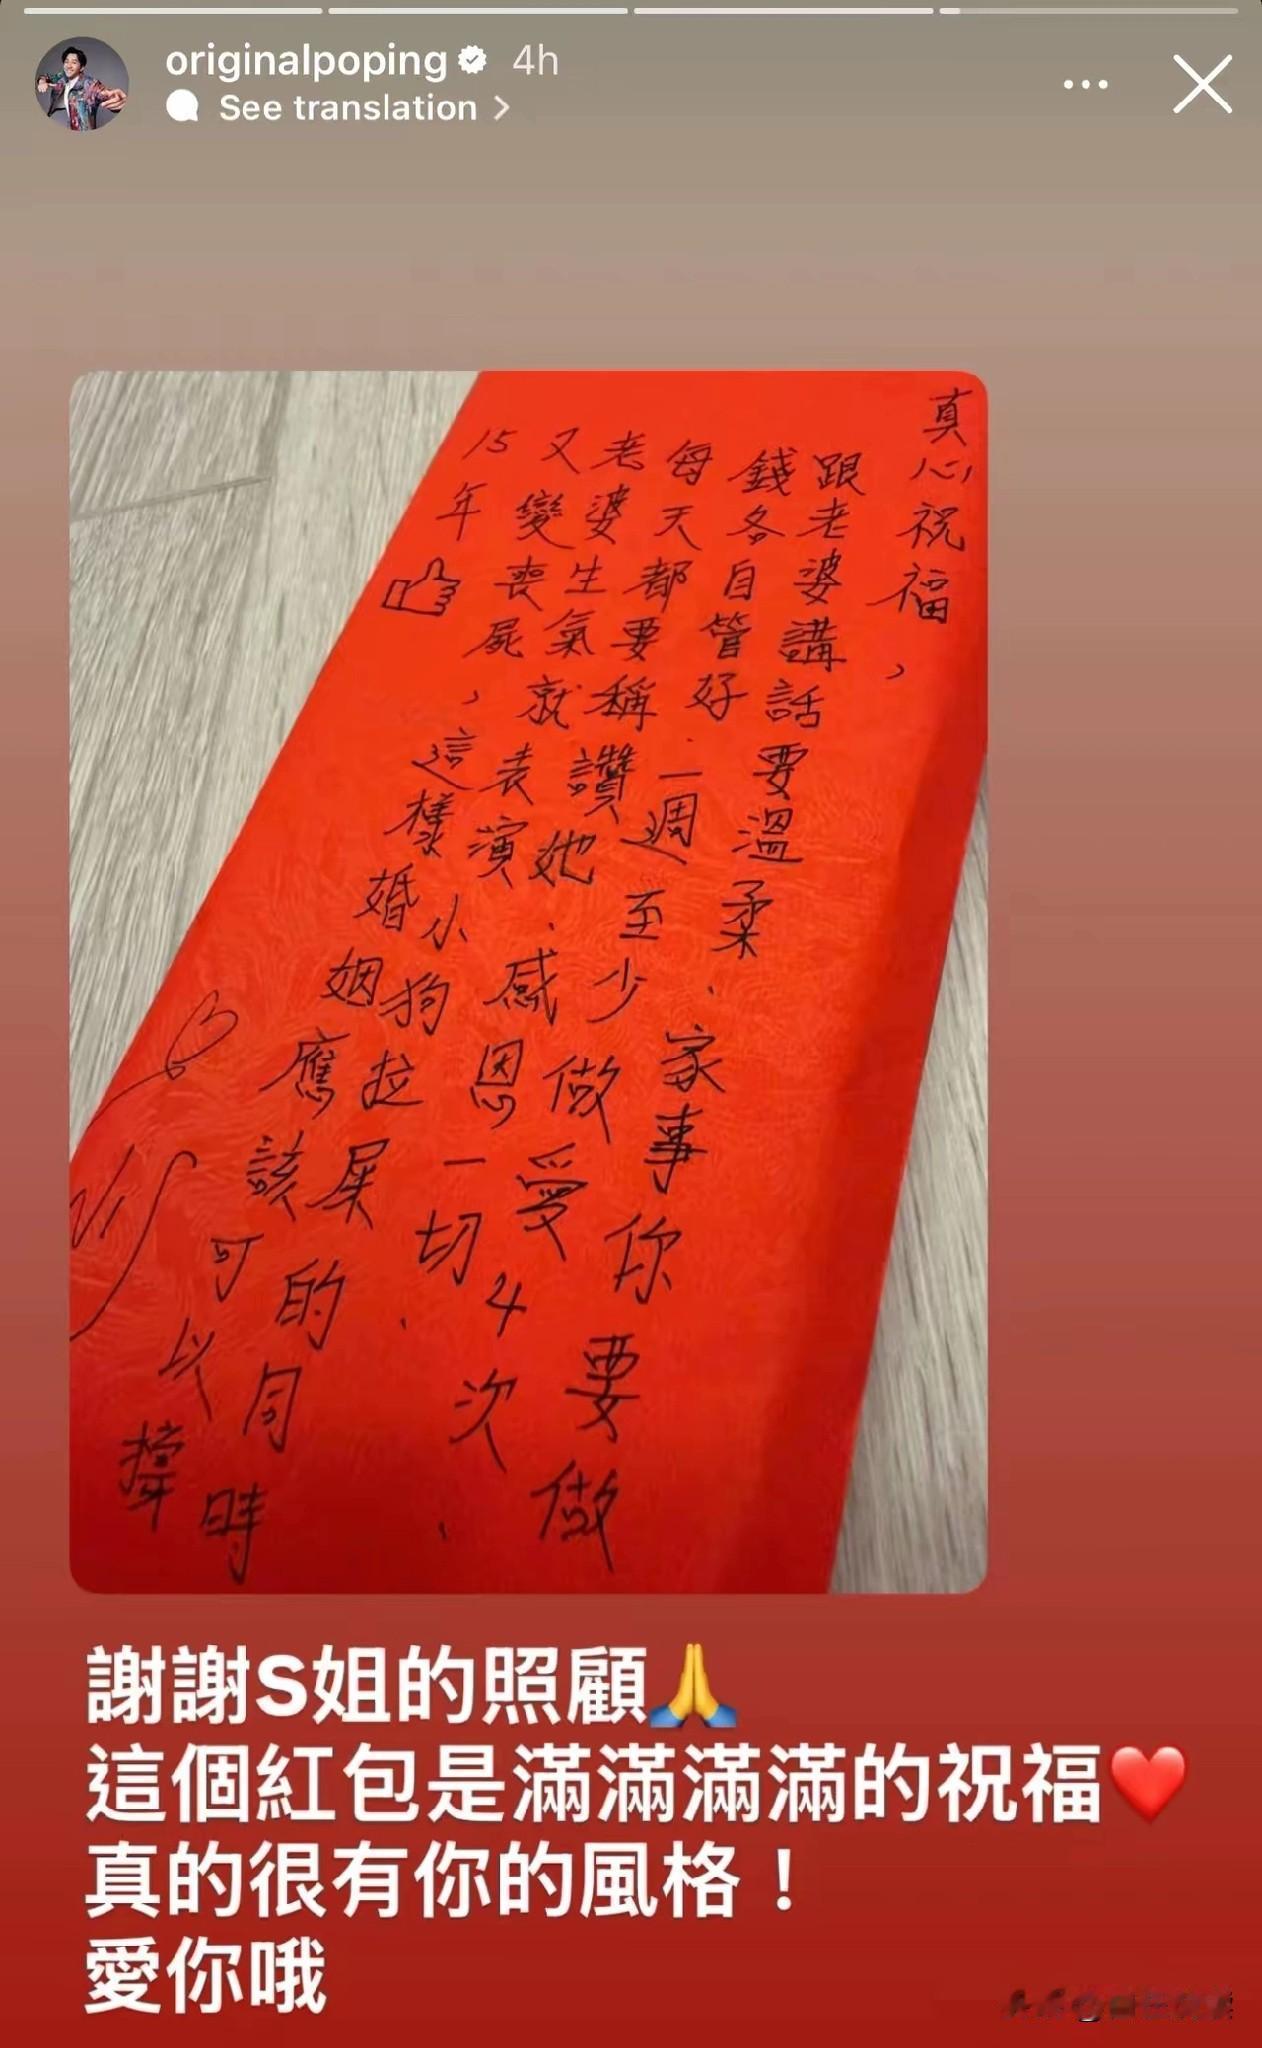 originalpoping 4h
See translation >
真心祝福，
跟老婆講話要溫柔、家事你要做
錢各自管好、一週至少做愛4次、
每天都要稱讚她、感恩一切、
老婆生氣就表演小狗拉屎的同時
又變喪屍，這樣婚姻應該可以撐
15年
謝謝S姐的照顧🙏
這個紅包是滿滿滿滿的祝福❤️
真的很有你的風格！
愛你哦